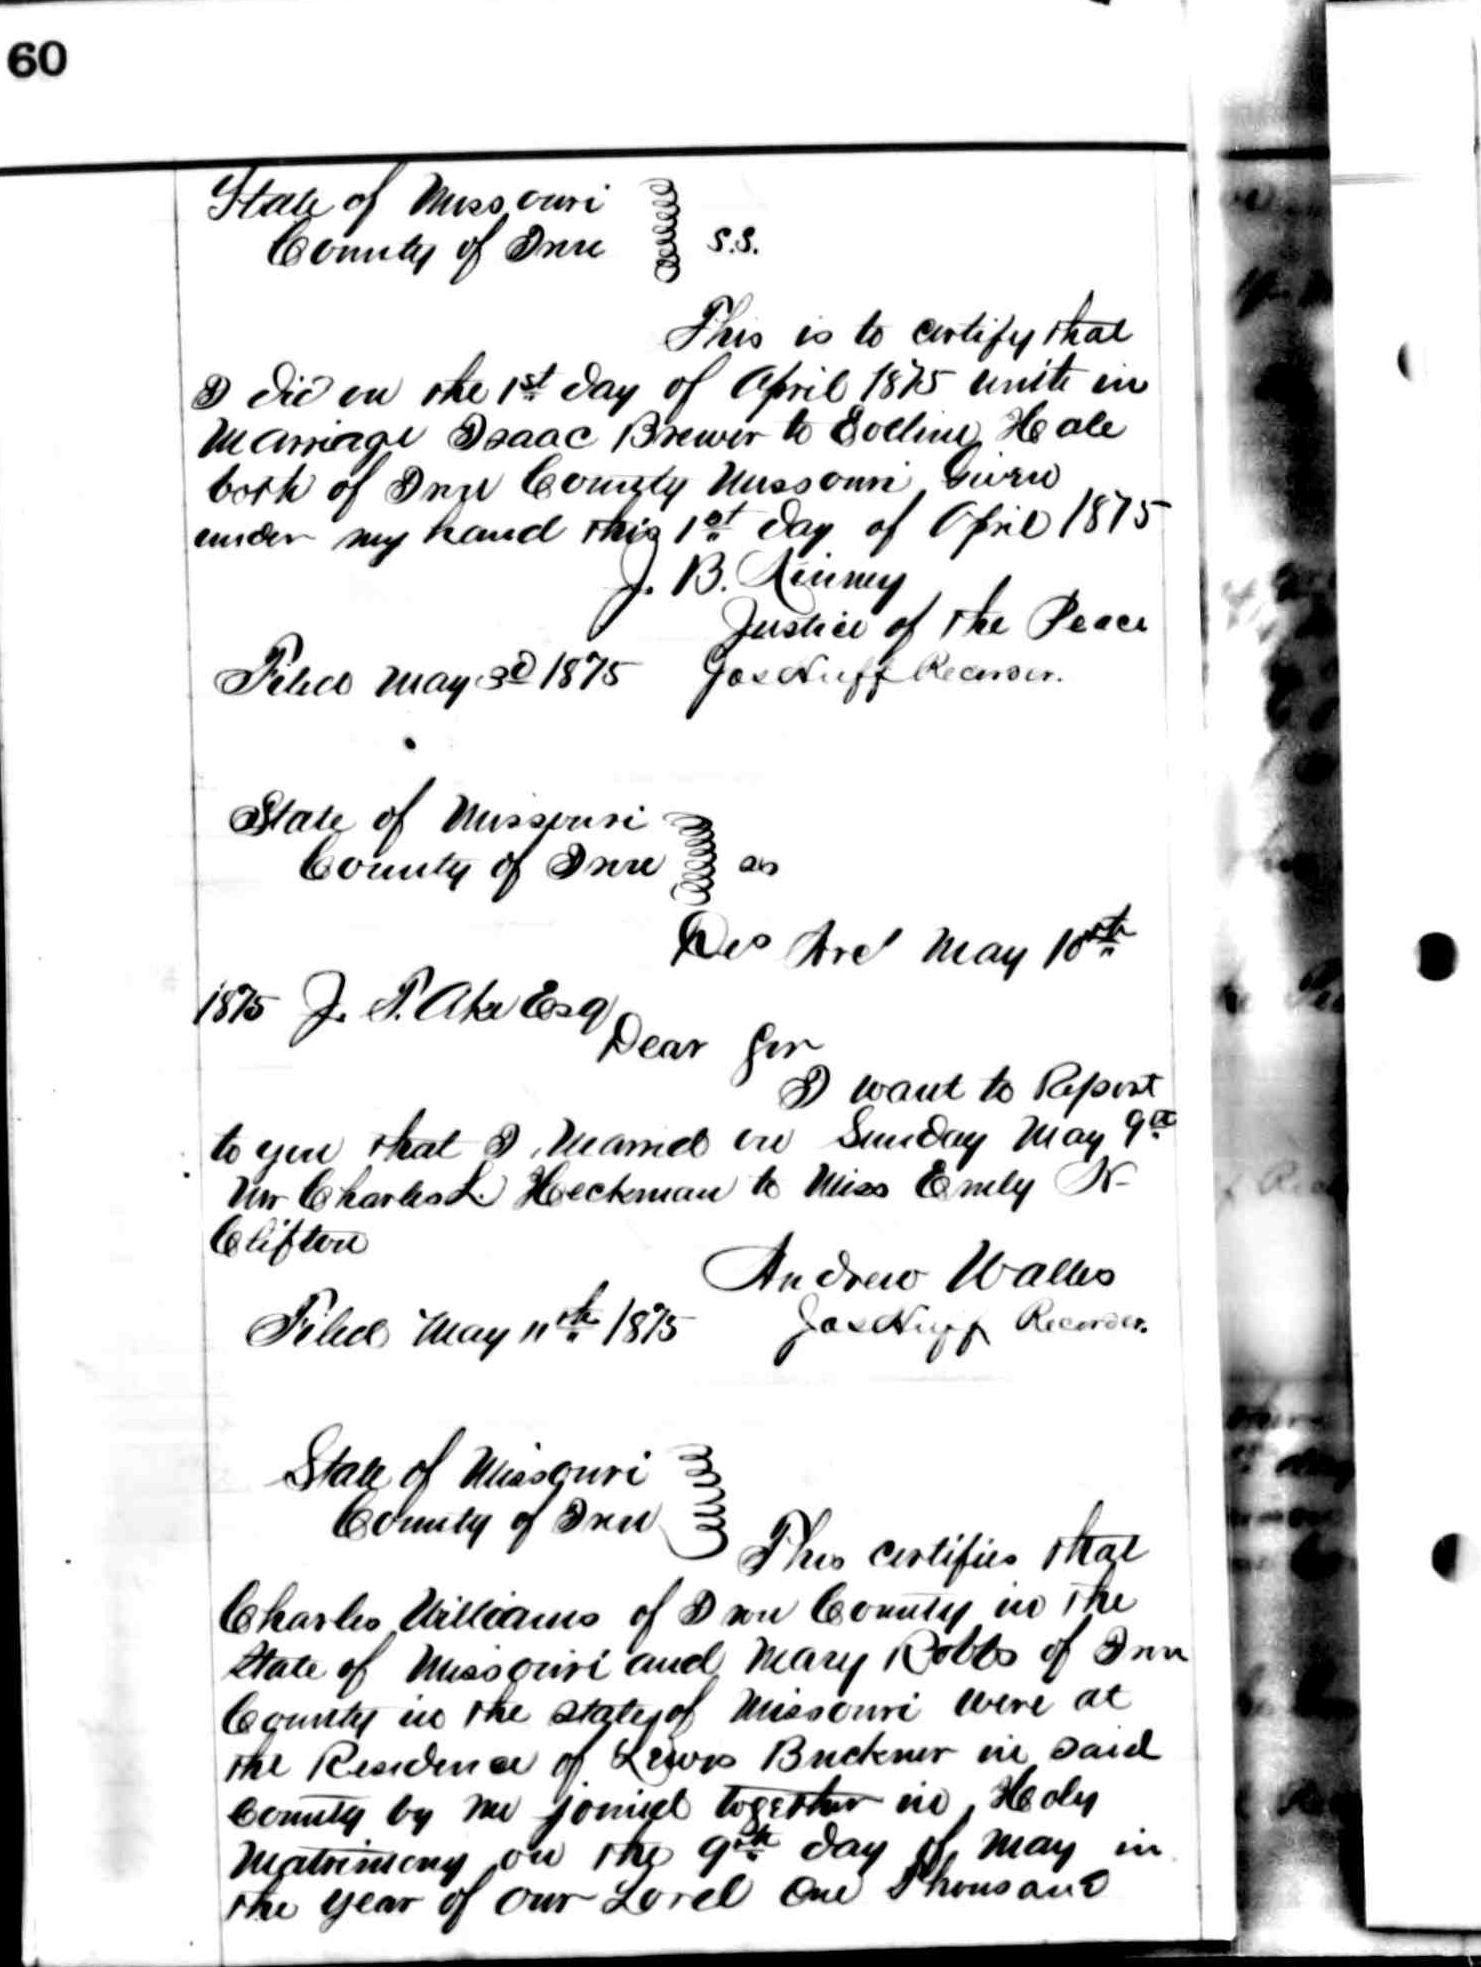 60
State of Missouri
County of Iron S.S.
This is to certify that
I did on the 1st day of April 1875 unite in
Marriage Isaac Brewer to Eveline Hale
both of Iron County Missouri Given
under my hand this 1st day of April 1875
J. B. Kinney
Justice of the Peace
Filed May 3d 1875 Jos Huff Recorder.
State of Missouri
County of Iron ss
Des Arc May 10th
1875 J. T. Ake Esq
Dear Sir
I want to Report
to you that I Married on Sunday May 9th
Mr Charles L. Heckman to Miss Emily N
Clifton
Andrew Walles
Filed May 11th 1875 Jos Huff Recorder.
State of Missouri
County of Iron
This certifies that
Charles Williams of Iron County in the
State of Missouri and Mary Robbs of Iron
County in the State of Missouri were at
the Residence of Lewis Buckner in said
County by me joined together in Holy
Matrimony on the 9th day of May in
the year of our Lord One Thousand